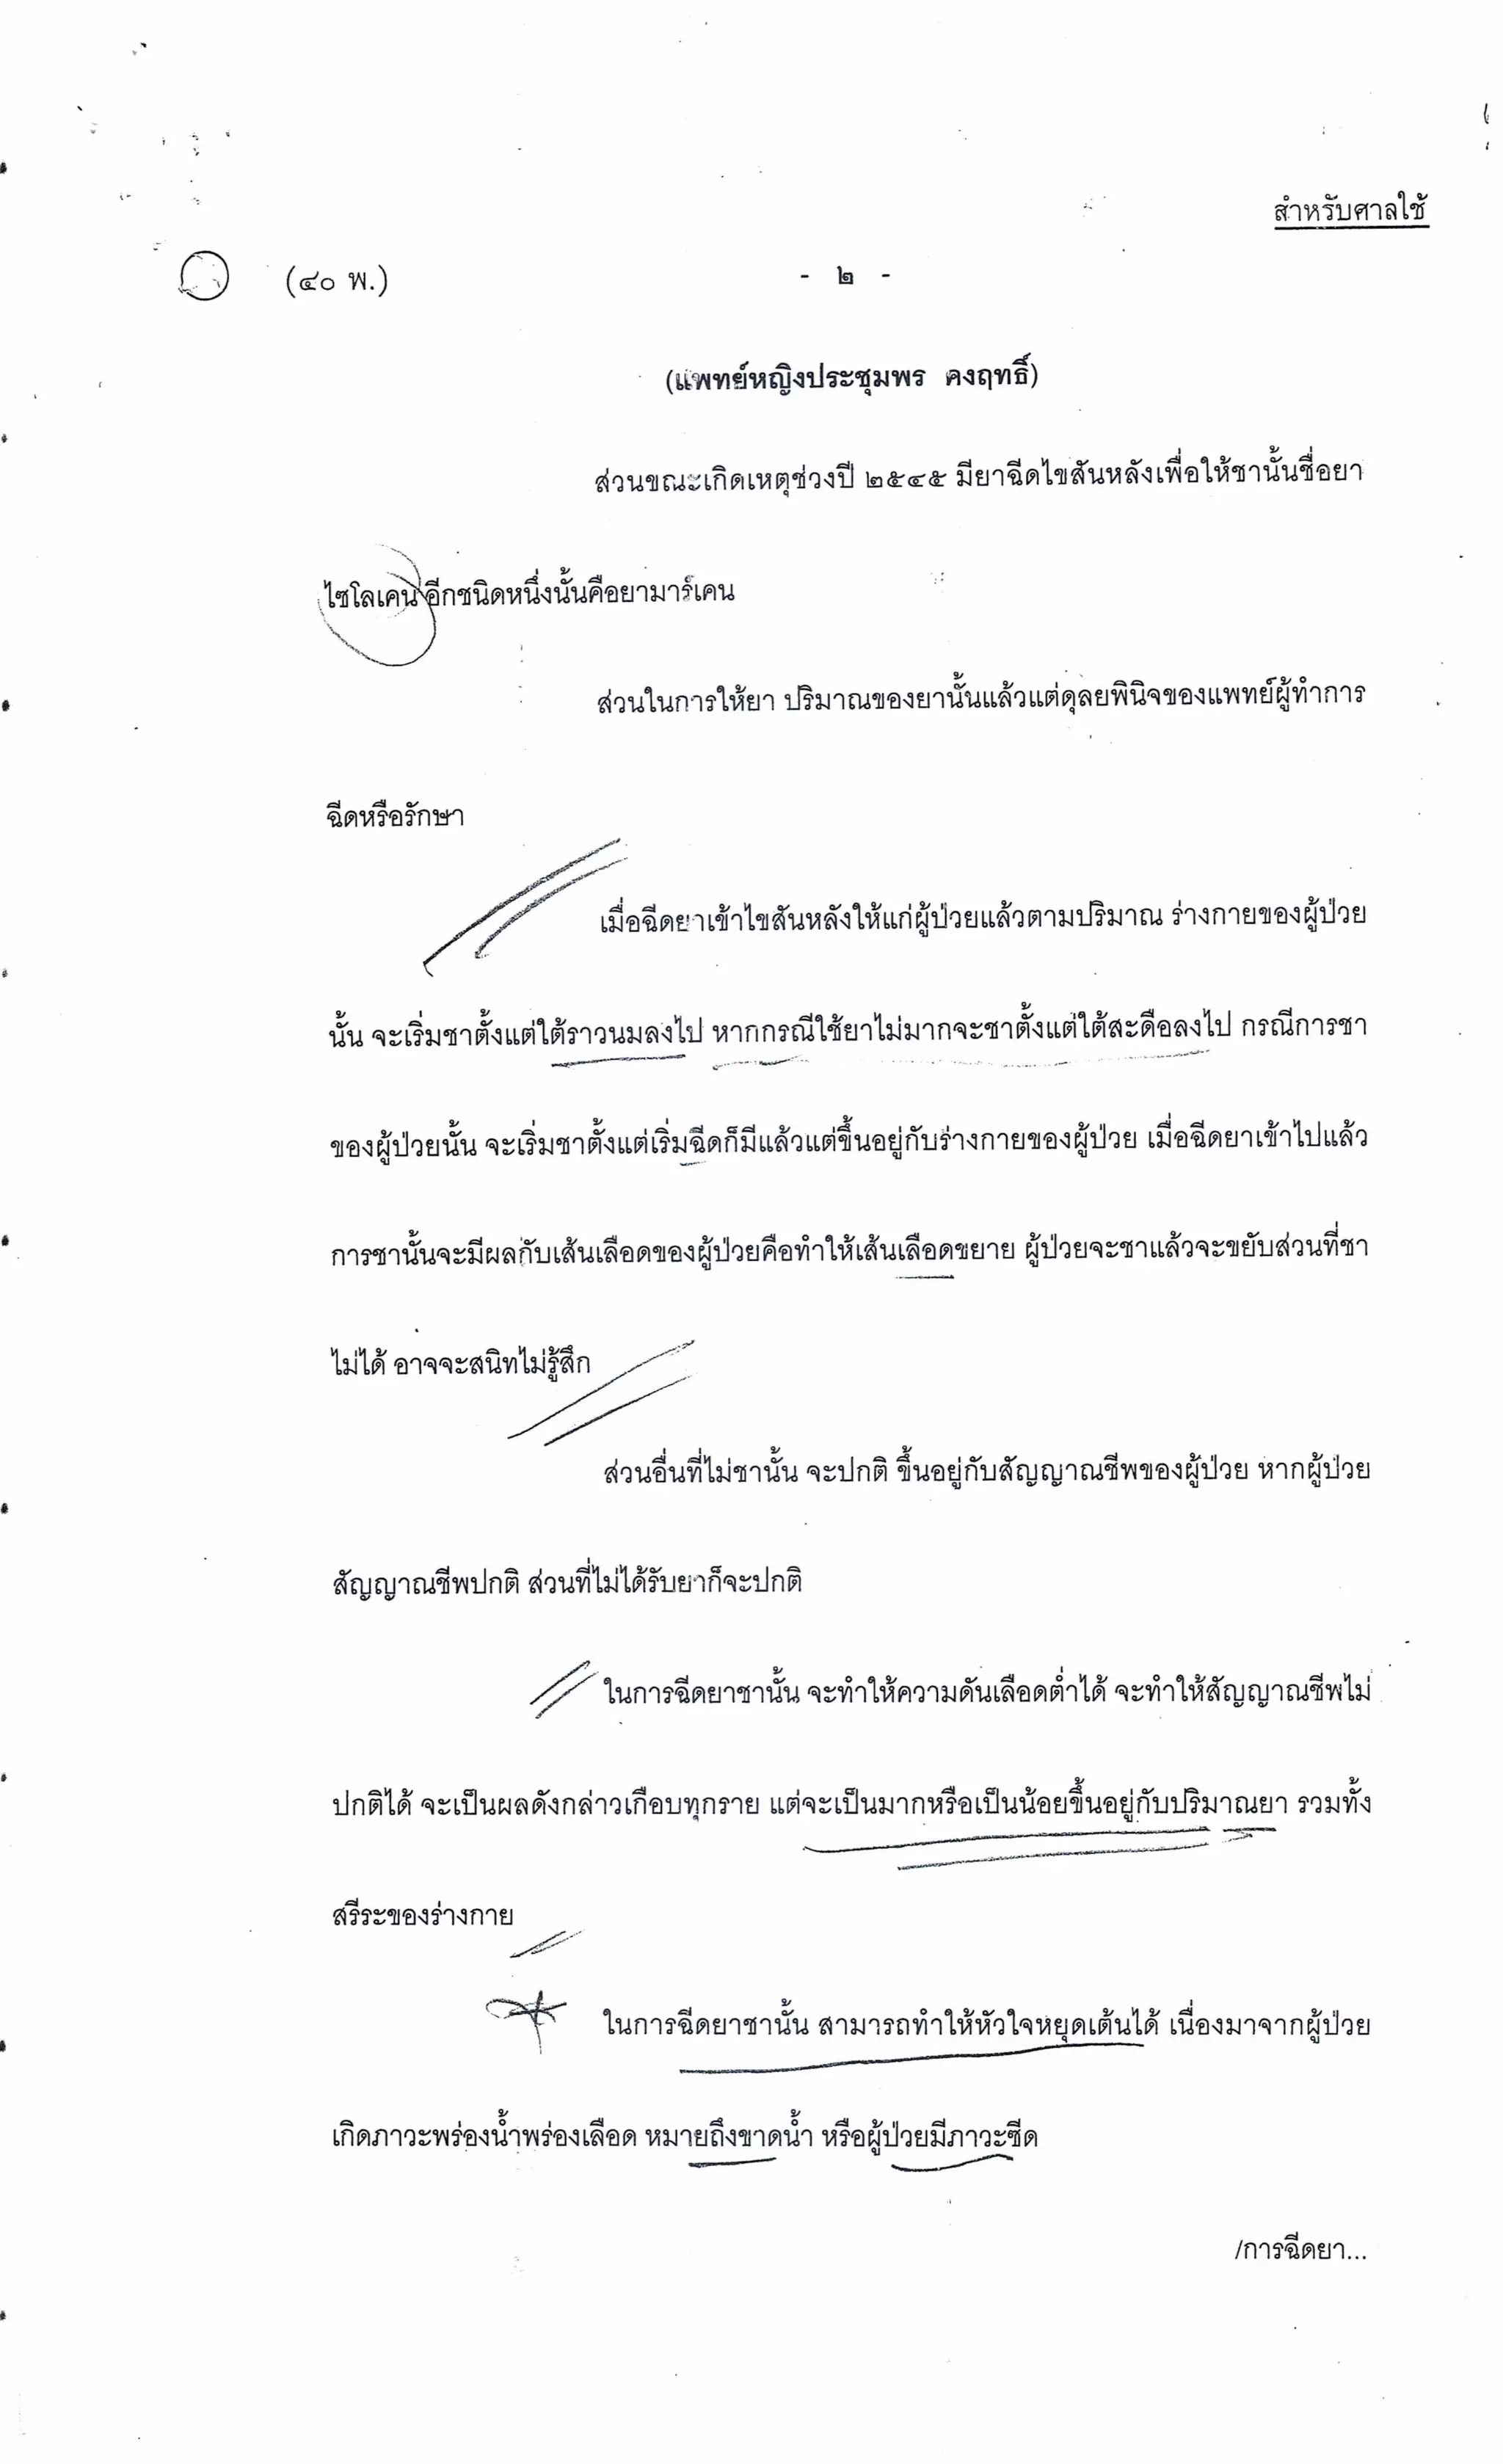 สำหรับศาลใช้
(๔๐ พ.)
- ๒ -
(แพทย์หญิงประชุมพร คงฤทธิ์)
ส่วนขณะเกิดเหตุช่วงปี ๒๕๔๕ มียาฉีดไขสันหลังเพื่อให้ชานั้นชื่อยา
ไซโลเคน อีกชนิดหนึ่งนั้นคือยามาร์เคน
ส่วนในการให้ยา ปริมาณของยานั้นแล้วแต่ดุลยพินิจของแพทย์ผู้ทำการ
ฉีดหรือรักษา
เมื่อฉีดยาเข้าไขสันหลังให้แก่ผู้ป่วยแล้วตามปริมาณ ร่างกายของผู้ป่วย
นั้น จะเริ่มชาตั้งแต่ใต้ราวนมลงไป หากกรณีใช้ยาไม่มากจะชาตั้งแต่ใต้สะดือลงไป กรณีการชา
ของผู้ป่วยนั้น จะเริ่มชาตั้งแต่เริ่มฉีดก็มีแล้วแต่ขึ้นอยู่กับร่างกายของผู้ป่วย เมื่อฉีดยาเข้าไปแล้ว
การชานั้นจะมีผลกับเส้นเลือดของผู้ป่วยคือทำให้เส้นเลือดขยาย ผู้ป่วยจะชาแล้วจะขยับส่วนที่ชา
ไม่ได้ อาจจะสนิทไม่รู้สึก
ส่วนอื่นที่ไม่ชานั้น จะปกติ ขึ้นอยู่กับสัญญาณชีพของผู้ป่วย หากผู้ป่วย
สัญญาณชีพปกติ ส่วนที่ไม่ได้รับยาก็จะปกติ
ในการฉีดยาชานั้น จะทำให้ความดันเลือดต่ำได้ จะทำให้สัญญาณชีพไม่
ปกติได้ จะเป็นผลดังกล่าวเกือบทุกราย แต่จะเป็นมากหรือเป็นน้อยขึ้นอยู่กับปริมาณยา รวมทั้ง
สรีระของร่างกาย
ในการฉีดยาชานั้น สามารถทำให้หัวใจหยุดเต้นได้ เนื่องมาจากผู้ป่วย
เกิดภาวะพร่องน้ำพร่องเลือด หมายถึงขาดน้ำ หรือผู้ป่วยมีภาวะซีด
/การฉีดยา...